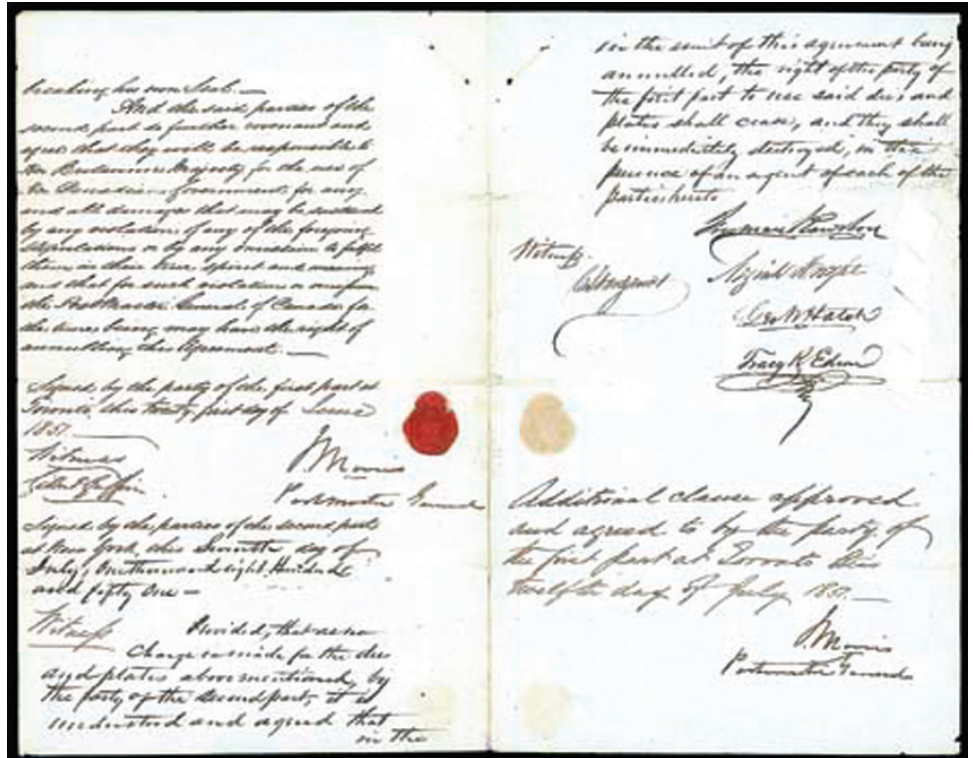 breaking his own Seal. —
And the said parties of the
second part do further covenant and
agree that they will be responsible to
Her Britannic Majesty for the use of
the Canadian Government for any
and all damages that may be sustained
by any violation of any of the foregoing
stipulations or by any omission to fulfil
them in their true spirit and meaning
and that for such violation or omission
the Postmaster General of Canada for
the time being may have the right of
annulling this Agreement. —
Signed by the party of the first part at
Toronto, this twenty first day of June
1851.
Witness
J Morris
Postmaster General
Signed by the parties of the second part
at New York, this Seventh day of
July, One thousand eight Hundred
and fifty One —
Witness
Provided, that as no
Charge is made for the dies
and plates above mentioned, by
the party of the second part, it is
understood and agreed that
in the
in the event of this agreement being
annulled, the right of the party of
the first part to use said dies and
plates shall cease, and they shall
be immediately destroyed, in the
presence of an agent of each of the
parties hereto
Freeman Rawdon
Witness.
Neziah Wright
Geo. W. Hatch
Tracy R. Edson
Additional clause approved
and agreed to by the party of
the first part at Toronto this
twelfth day of July 1851. —
J. Morris
Postmaster General